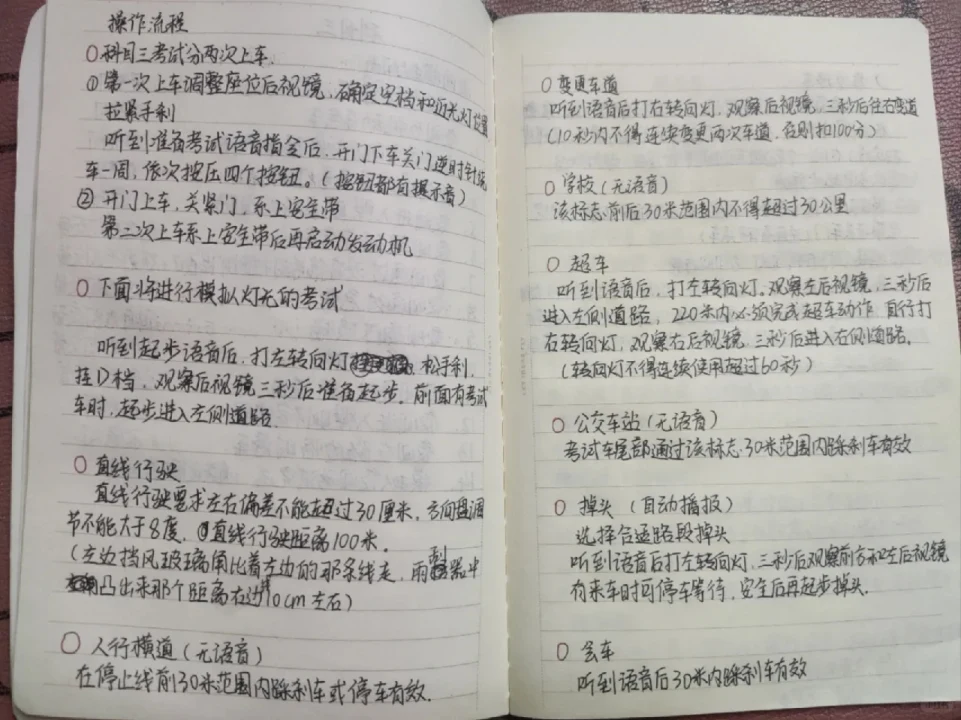 操作流程
○科目三考试分两次上车.
①第一次上车调整座位后视镜,确定空档和近光灯位置
拉紧手刹
听到准备考试语音指令后,开门下车关门逆时针绕
车一周,依次按压四个按钮。(按钮都有提示音)
② 开门上车,关紧门,系上安全带
第二次上车系上安全带后再启动发动机
○下面将进行模拟灯光的考试
听到起步语音后,打左转向灯 松手刹,
挂D档,观察后视镜三秒后准备起步.前面有考试
车时,起步进入左侧道路
○ 直线行驶
直线行驶要求左右偏差不能超过30厘米,方向盘调
节不能大于8度,直线行驶距离100米.
(左边挡风玻璃角比着左边的那条线走,雨刮器中
凸出来那个距离右边10cm左右)
○ 人行横道(无语音)
在停止线前30米范围内踩刹车或停车有效.
○ 变更车道
听到语音后打右转向灯,观察后视镜,三秒后往右变道
(10秒内不得连续变更两次车道,否则扣100分)
○ 学校(无语音)
该标志前后30米范围内不得超过30公里
○ 超车
听到语音后,打左转向灯,观察左后视镜,三秒后
进入左侧道路,220米内必须完成超车动作,自行打
右转向灯,观察右后视镜,三秒后进入右侧道路.
(转向灯不得连续使用超过60秒)
○ 公交车站(无语音)
考试车尾部通过该标志30米范围内踩刹车有效
○ 掉头(自动播报)
选择合适路段掉头
听到语音后打左转向灯,三秒后观察前方和左后视镜
有来车时可停车等待,安全后再起步掉头.
○ 会车
听到语音后30米内踩刹车有效